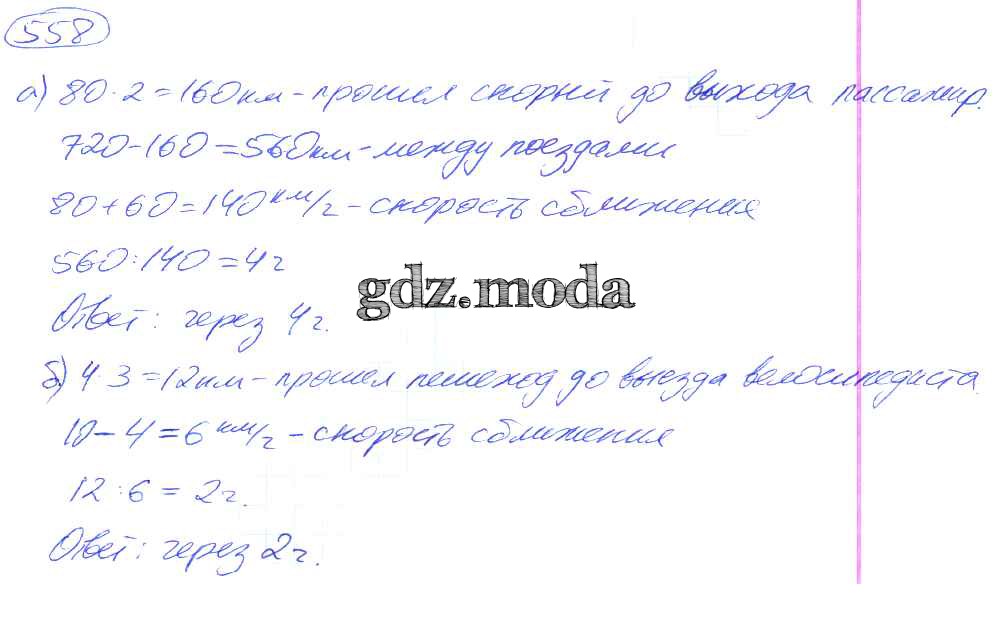 558
а) 80·2=160км-прошел скорый до выхода пассажир.
720-160=560км-между поездами
80+60=140км/ч-скорость сближения
560:140=4ч
gdz.moda
Ответ: через 4ч.
б) 4·3=12км-прошел пешеход до выезда велосипедиста
10-4=6км/ч-скорость сближения
12:6=2ч.
Ответ: через 2ч.